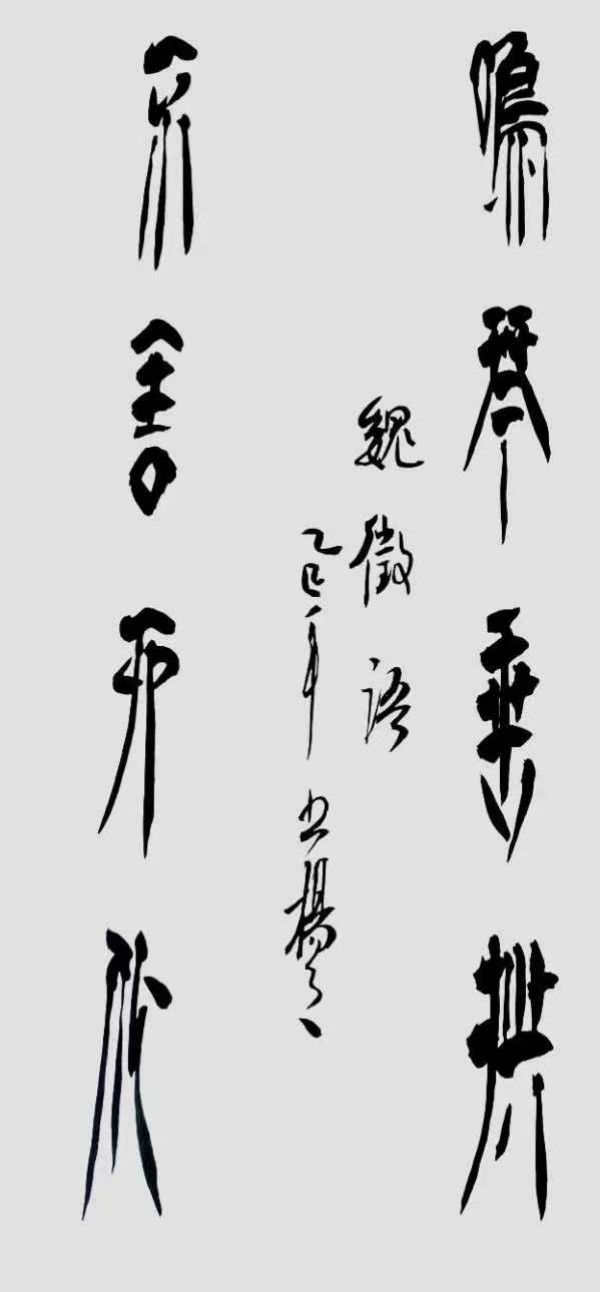 鳴琴垂拱
魏徵語
乙巳年
不言而化